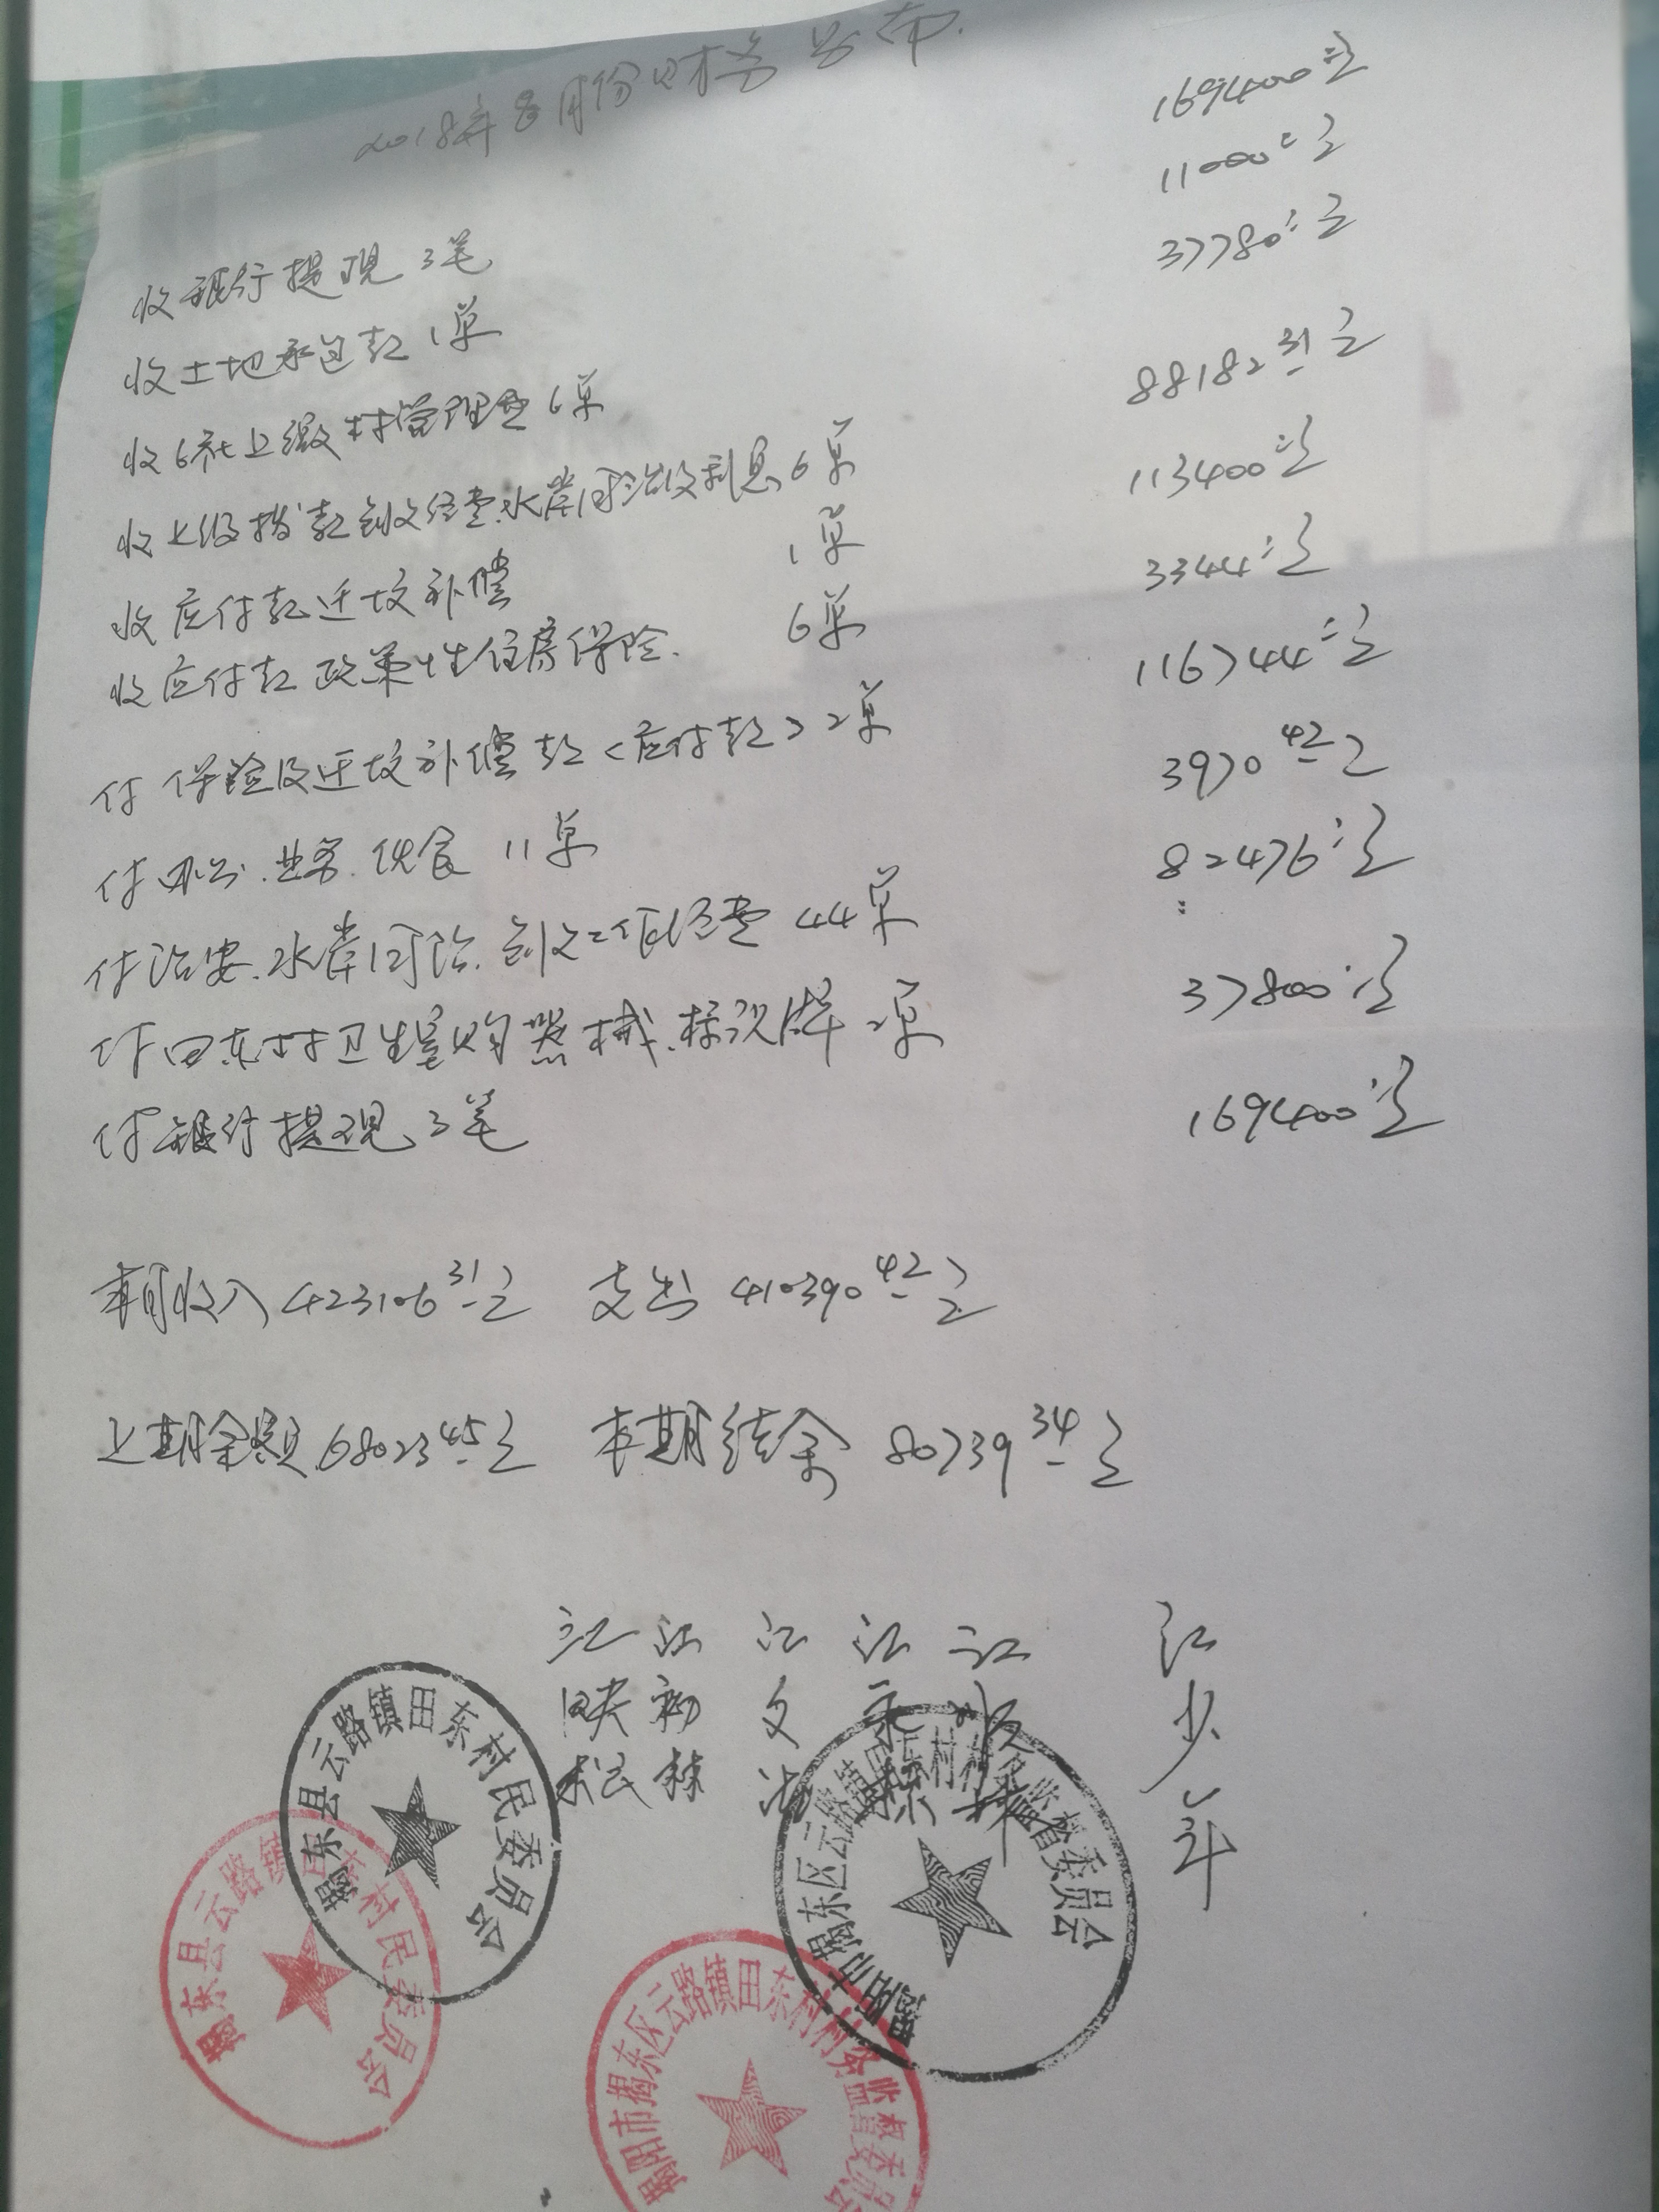 2018年8月份财务公布.
收银行提现3笔 169400元
收土地承包款1单 11000元
收6社上缴村管理费6单 37780元
收上级拨款创文经费.水岸同治及利息6单 88182.31元
收应付款迁坟补偿 1单 113400元
收应付款政策性住房保险. 6单 3344元
付保险及迁坟补偿款<应付款>2单 116744元
付办公.业务.伙食 11单 3970.42元
付治安.水岸同治.创文工作经费44单 82476元
付田东村卫生室购器械.标识牌2单 37800元
付银行提现3笔 169400元
本期收入423106.31元 支出410390.42元
上期余额68023.45元 本期结余80739.34元
江 江 江 江 江 江少年
揭东县云路镇田东村民委员会
揭阳市揭东区云路镇田东村村务监督委员会
揭东县云路镇田东村民委员会
揭阳市揭东区云路镇田东村村务监督委员会